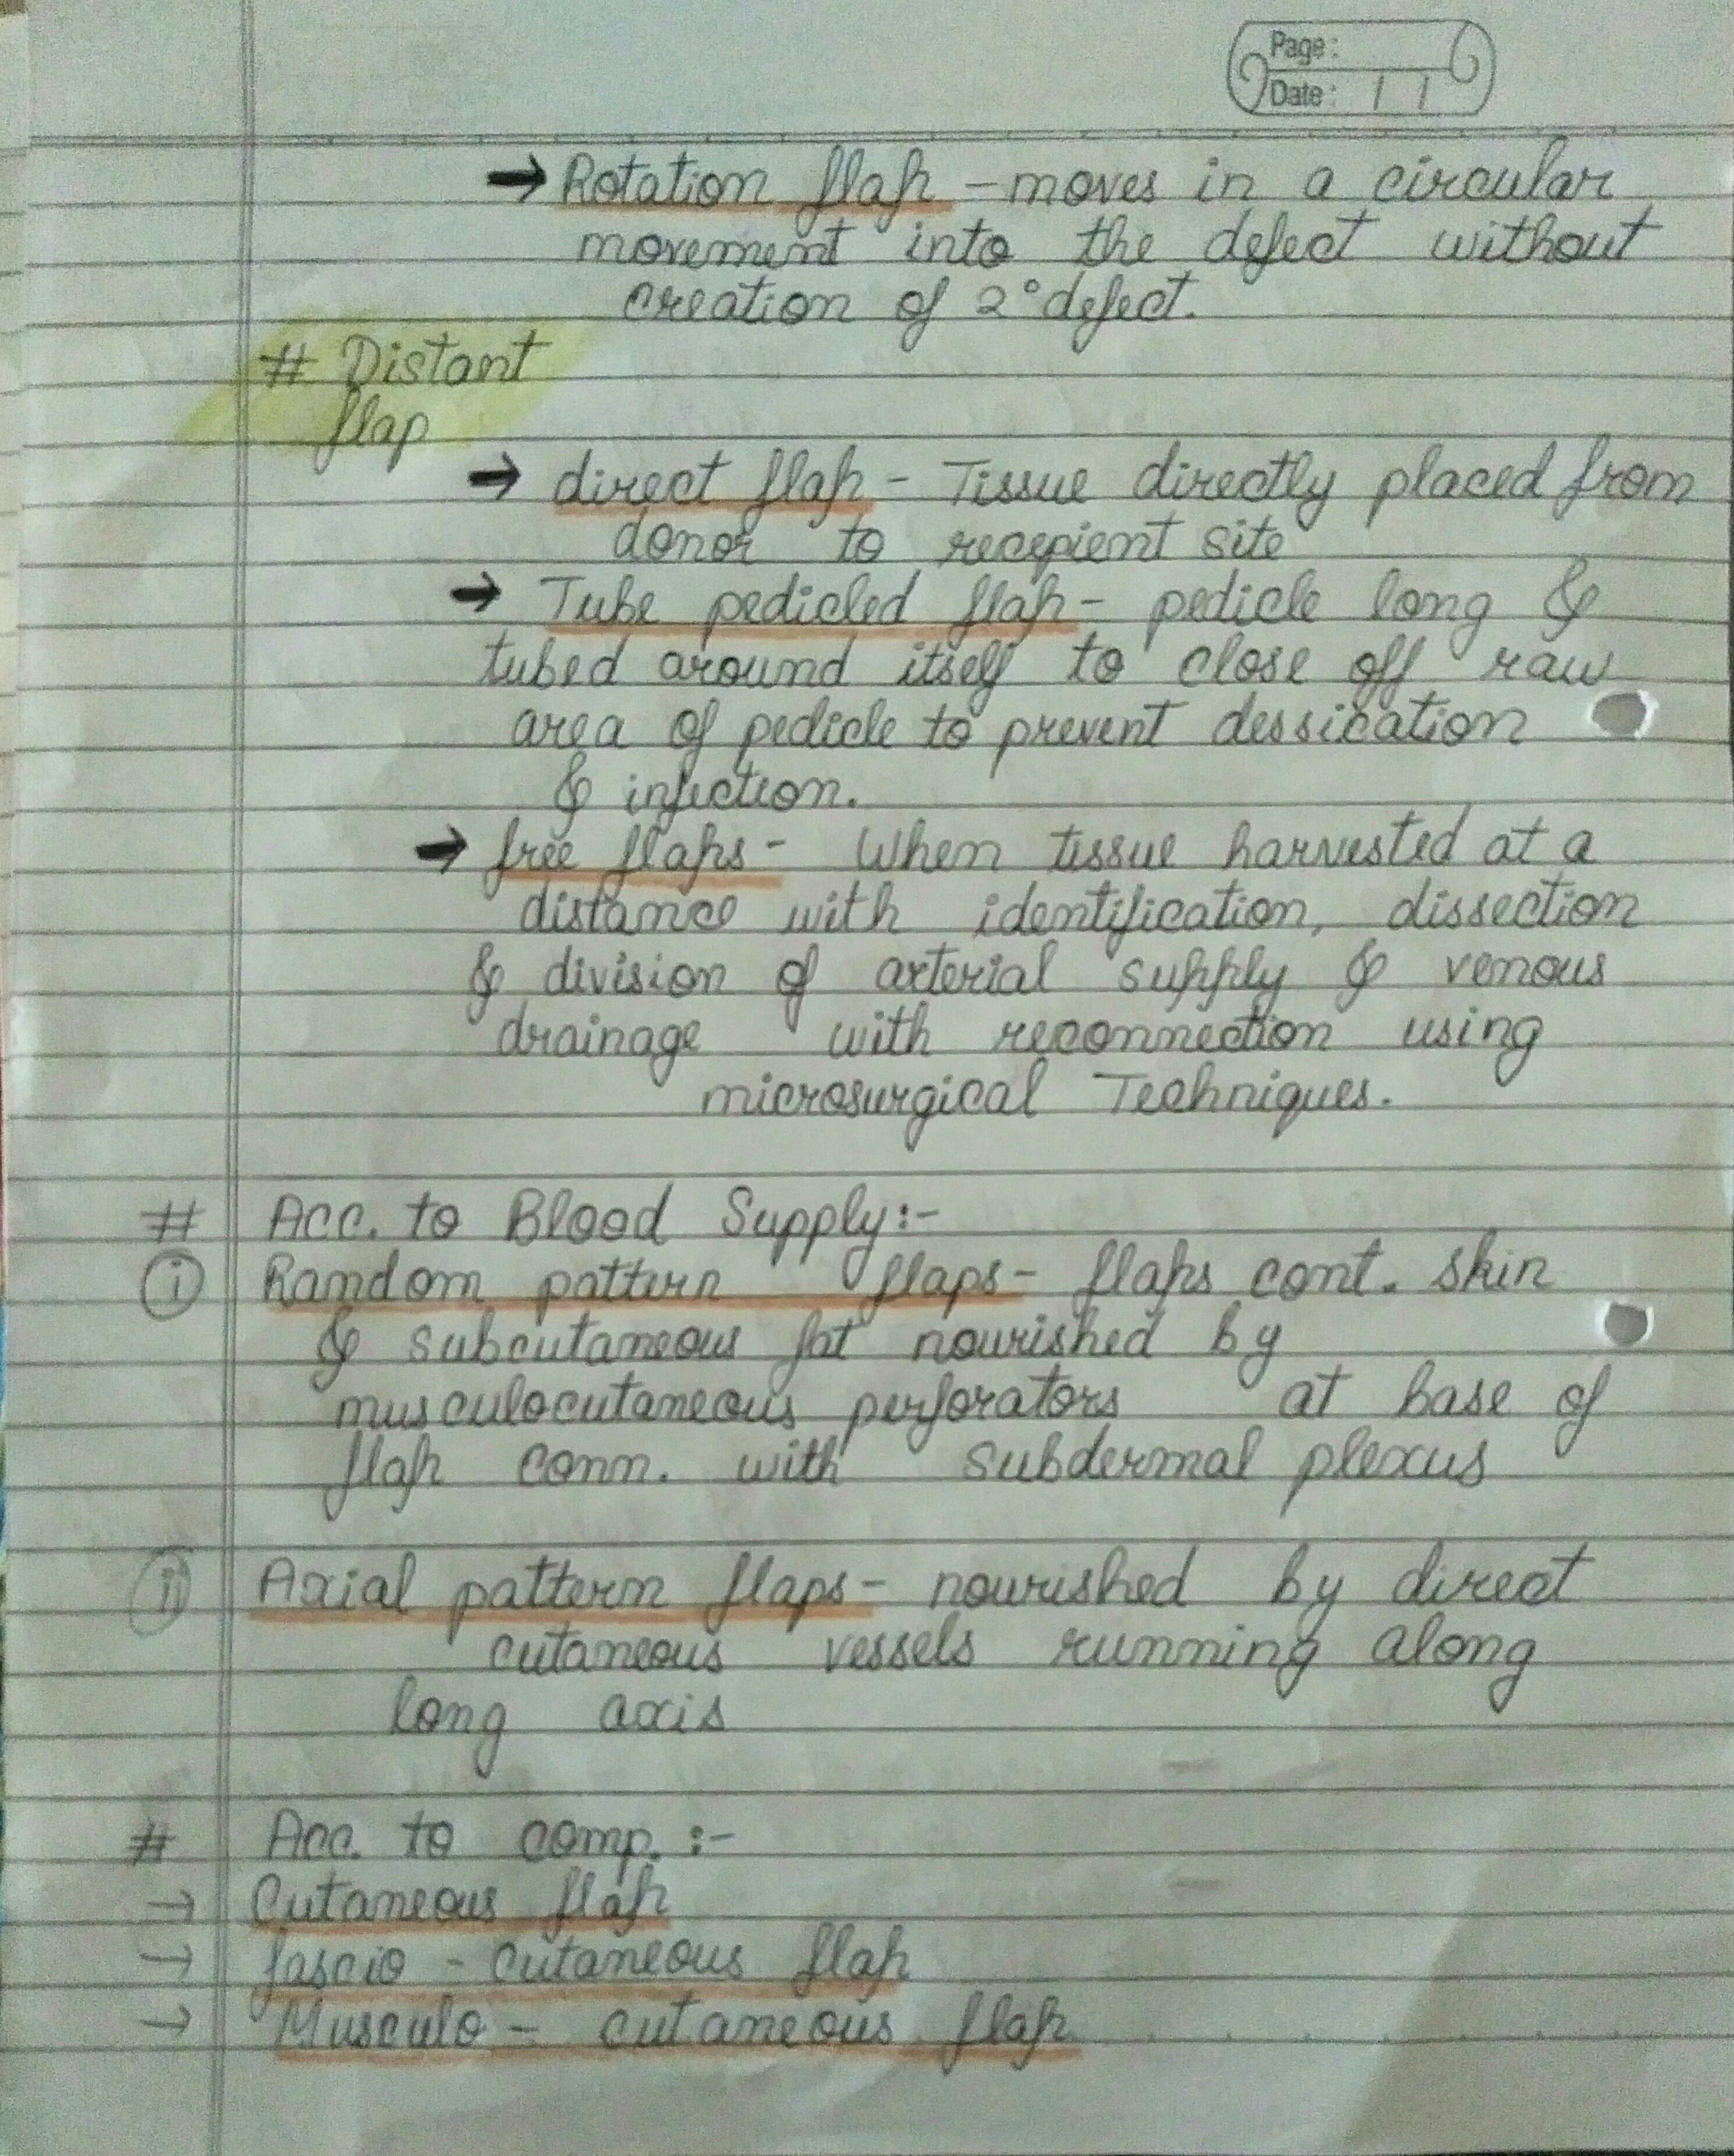 Page:
Date: / /
→ Rotation flap - moves in a circular
movement into the defect without
creation of 2° defect.
# Distant
flap
→ direct flap - Tissue directly placed from
donor to recepient site
→ Tube pedicled flap - pedicle long &
tubed around itself to close off raw
area of pedicle to prevent dessication
& infection.
→ free flaps - When tissue harvested at a
distance with identification, dissection
& division of arterial supply & venous
drainage with reconnection using
microsurgical Techniques.
# Acc. to Blood Supply:-
(i) Random pattern flaps - flaps cont. skin
& subcutaneous fat nourished by
musculocutaneous perforators at base of
flap conn. with subdermal plexus
(ii) Axial pattern flaps - nourished by direct
cutaneous vessels running along
long axis
# Acc. to comp. :-
→ Cutaneous flap
→ fascio - cutaneous flap
→ Musculo - cutaneous flap